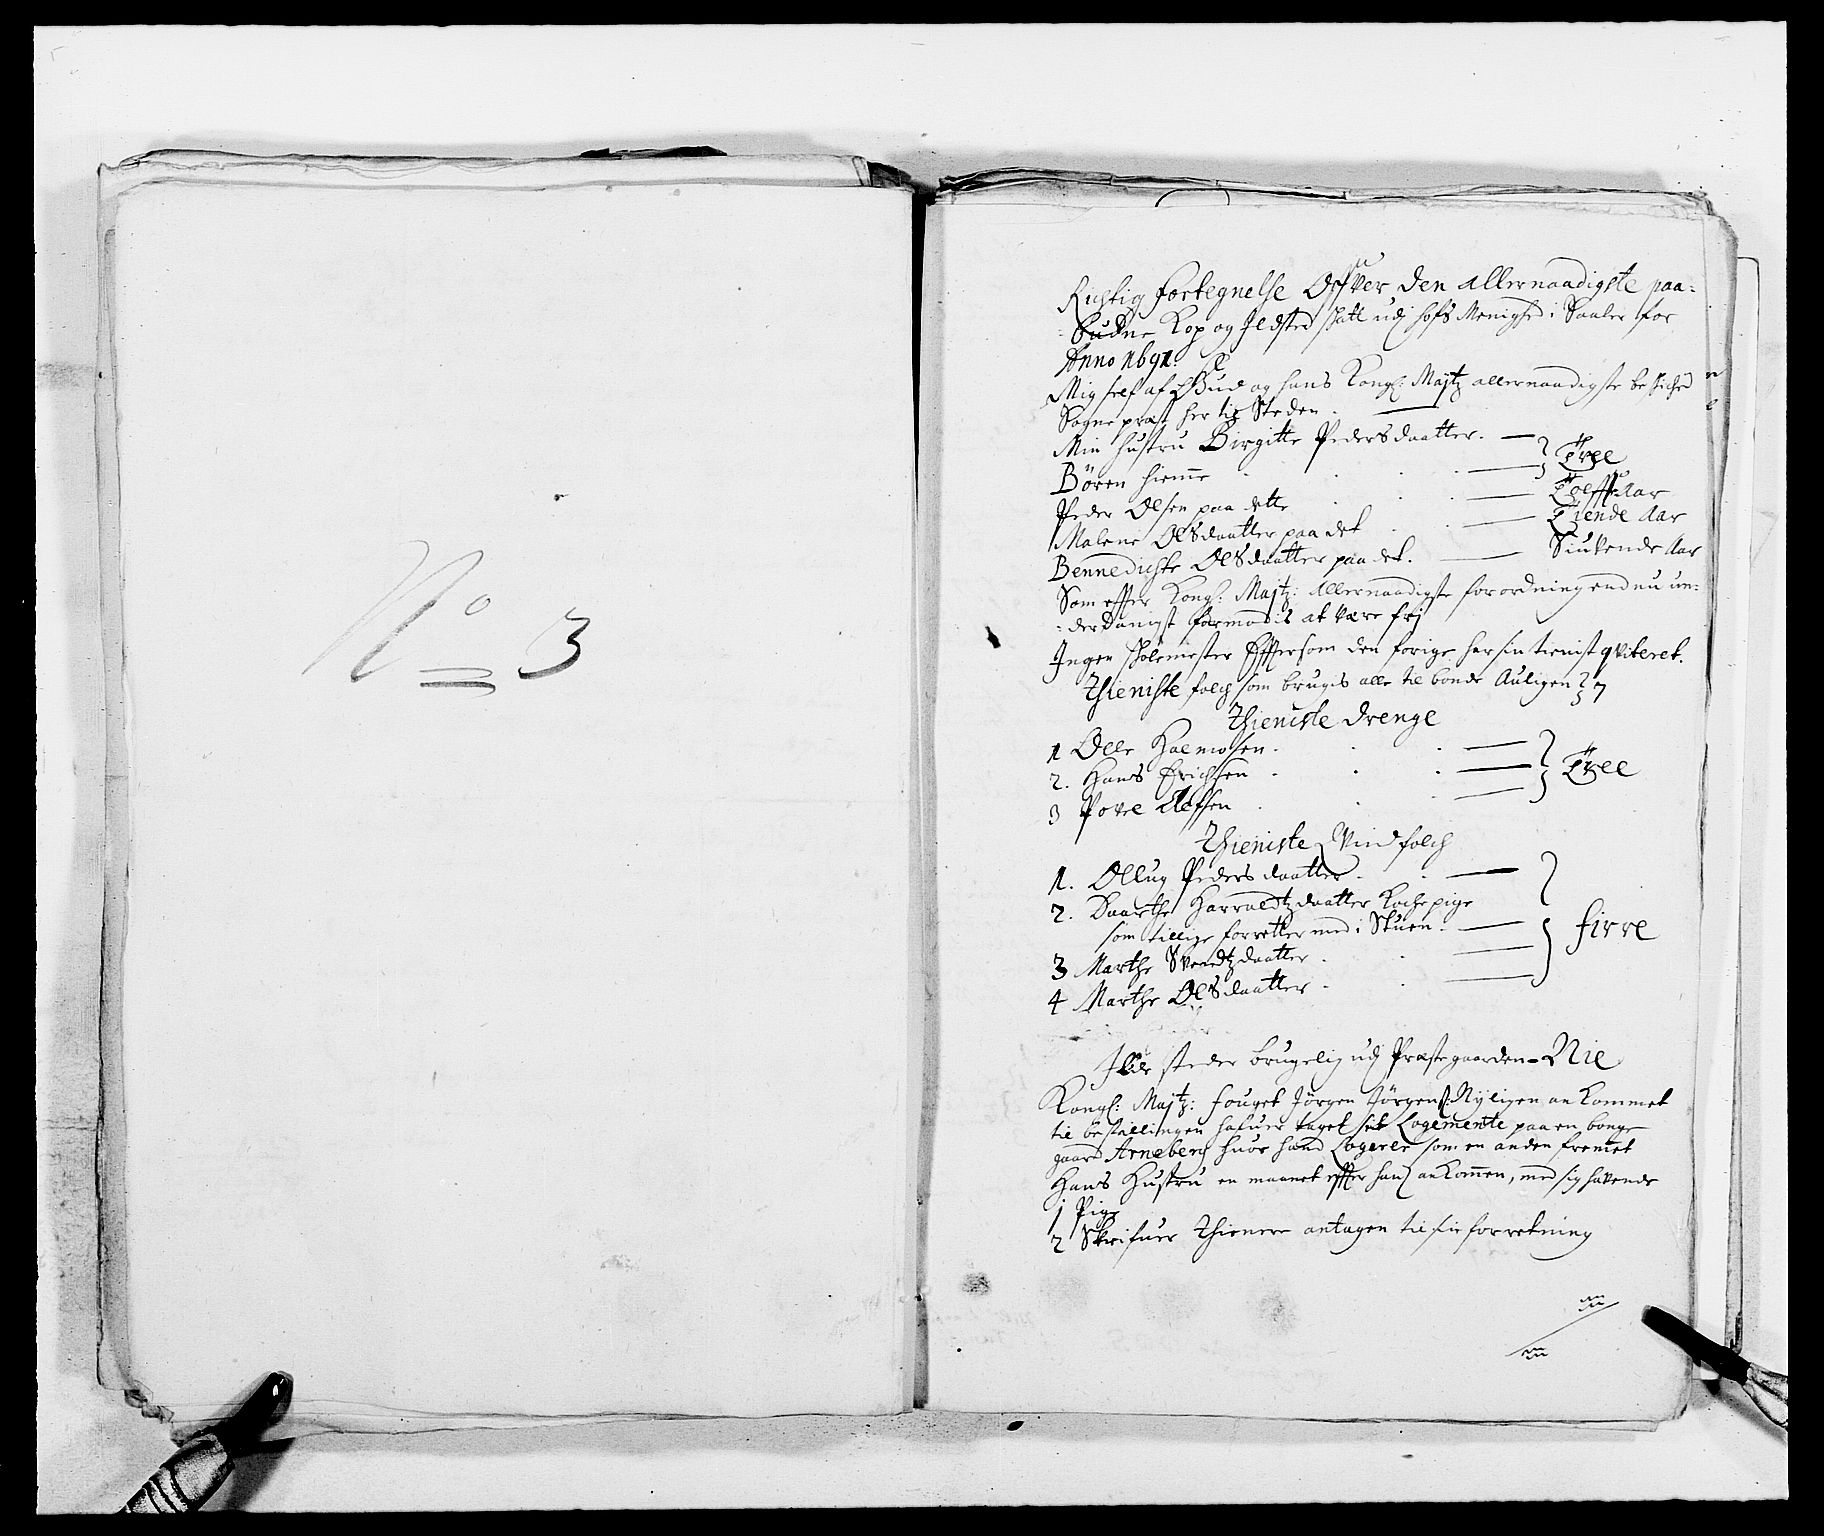 No 3
Richtig fortegnelse Ofver den allernaadigste paa-
budne Kop og Ildsted skatt udj hofs Menighed i Soeler for
Anno 1691.
Mig self af Gud og hans Kongl: Maytz allernaadigste beskiched
Sogne præst her til Steden.
Min hustru Birgitte Pedersdaatter.
Børen hiemme } Tree
Peder Olsen paa dette Tolffte Aar
Malene Olsdaatter paa det Tiende Aar
Bennedichte Olsdaatter paa det. Siuvende Aar
Som effter Kongl: Maytz: Allernaadigste forordning endnu un-
derdanigst formodis at være frj
Ingen skolemester Efftersom den forige har sin tienist qviteret.
Thieniste folch som brugis alle til bonde Auligen } 7
Thieniste drenge
1 Olle Halmosen.
2. Hans Erichsen } Tree
3 Povel Olefsen
Thieniste Qvindfolch
1. Ollug Pedersdaatter.
2. Daarthe Harraldtzdaatter Kochepige
som tillige forretter med i Stuen. } firre
3 Marthe Svendtzdaatter
4 Marthe Olsdaatter
Ilde steder brugelig udj Præstegaarden - Nie
Kongl: Maytz: fouget Jørgen Jørgens: Nyligen ankommet
til bestillingen hafuer taget sit Logemente paa en bonde
gaard Arneberg huor hand Logerer som en anden fremet
Hans Hustru en maanet effter hans ankommen, med sig havende
1 Pige
2 Skrifuer Thienere antagen til sin forretning